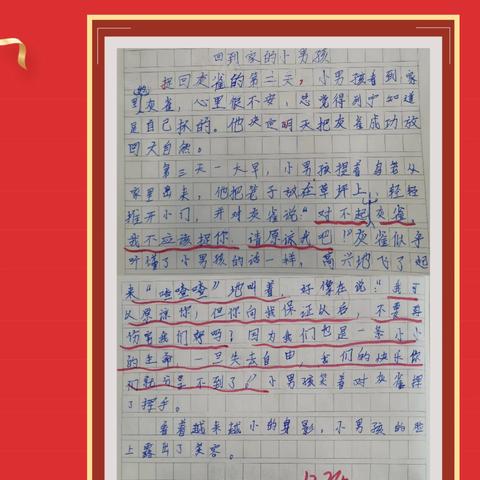 回到家的小男孩
捉回灰雀的第二天，小男孩看到家
里灰雀，心里很不安，总觉得列宁知道
是自己抓的。他决定明天把灰雀成功放
回大自然。
第三天一大早，小男孩提着自若从
家里出来，他把笼子放在草坪上，轻轻
推开小门，并对灰雀说“对不起灰雀，
我不应该捉你，请原谅我吧！”灰雀似乎
听懂了小男孩的话一样，高兴地飞了起
来“喳喳喳”地叫着，好像在说：“我可
以原谅你，但你向我保证以后，不要再
伤害我们好吗？因为我们也是一条小小
的生命，一旦失去自由，我们的快乐你
们就分享不到了！”小男孩笑着对灰雀挥
了挥手。
看着越来越小的身影，小男孩的脸
上露出了笑容。